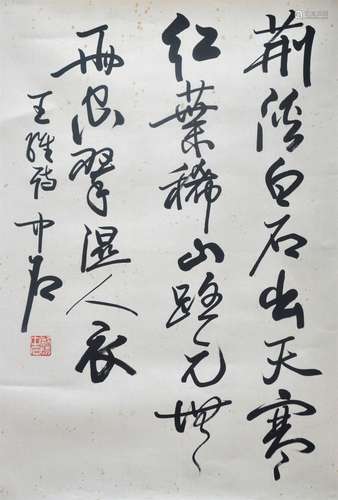 荆溪白石出天寒
红葉稀山路元無
雨空翠湿人衣
王維詩 中石